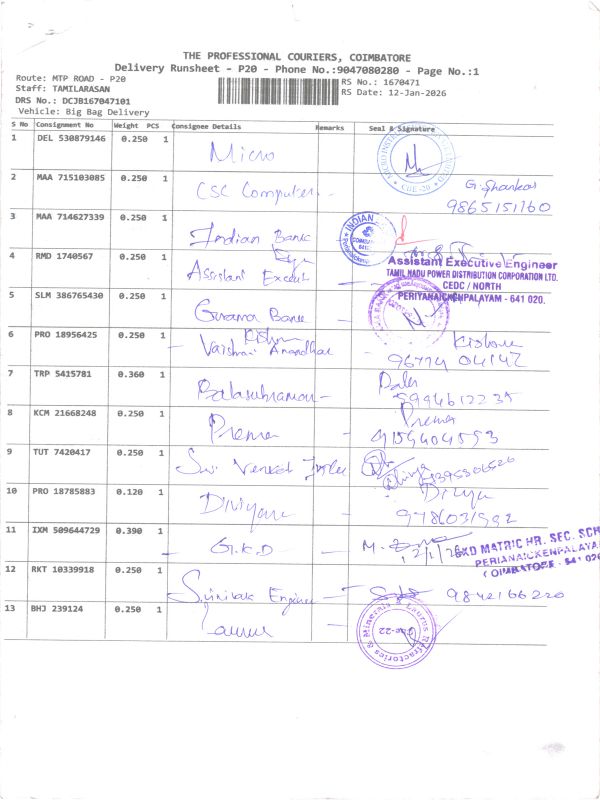 THE PROFESSIONAL COURIERS, COIMBATORE
Delivery Runsheet - P20 - Phone No.:9047080280 - Page No.:1
Route: MTP ROAD - P20
Staff: TAMILARASAN
DRS No.: DCJB167047101
Vehicle: Big Bag Delivery
RS No.: 1670471
RS Date: 12-Jan-2026
S No Consignment No Weight PCS Consignee Details Remarks Seal & Signature
1 DEL 530879146 0.250 1 Micro
2 MAA 715103085 0.250 1 CSC Computer - G. Shankar
9865151760
3 MAA 714627339 0.250 1 Indian Bank
INDIAN
4 RMD 1740567 0.250 1 Assistant Execut
Assistant Executive Engineer
TAMIL NADU POWER DISTRIBUTION CORPORATION LTD.
CEDC / NORTH
PERIYANAICKENPALAYAM - 641 020.
5 SLM 386765430 0.250 1 Bank
6 PRO 18956425 0.250 1 Kishore
7 TRP 5415781 0.360 1 Balasubraman -
8 KCM 21668248 0.250 1 Prema - Prema
9159404593
9 TUT 7420417 0.250 1 Sri Venkat
10 PRO 18785883 0.120 1 Divya
11 IXM 509644729 0.390 1 - G.K.D - M.
12/1/26
GKD MATRIC HR. SEC. SCH
PERIANAICKENPALAYA
COIMBATORE - 641 020
12 RKT 10339918 0.250 1 Engine - 9842166220
13 BHJ 239124 0.250 1
Minerals & Laurus Refractories &
Cbe-22